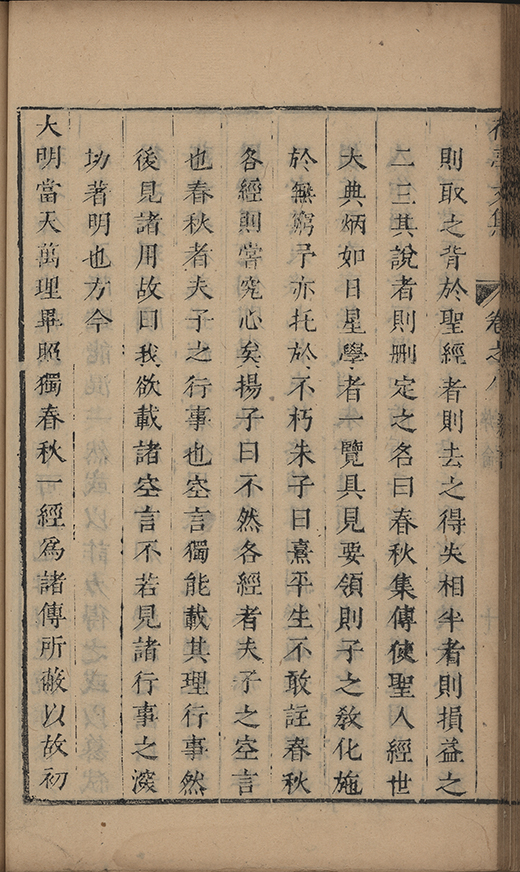 則取之背於聖經者則去之得失相半者則損益之
二三其說者則刪定之名曰春秋集傳使聖人經世
大典炳如日星學者一覽具見要領則子之敎化施
於無窮予亦托於不朽朱子曰熹平生不敢註春秋
各經則嘗究心矣揚子曰不然各經者夫子之空言
也春秋者夫子之行事也空言獨能載其理行事然
後見諸用故曰我欲載諸空言不若見諸行事之深
切著明也方今
大明當天萬理畢照獨春秋一經爲諸傳所蔽以故初